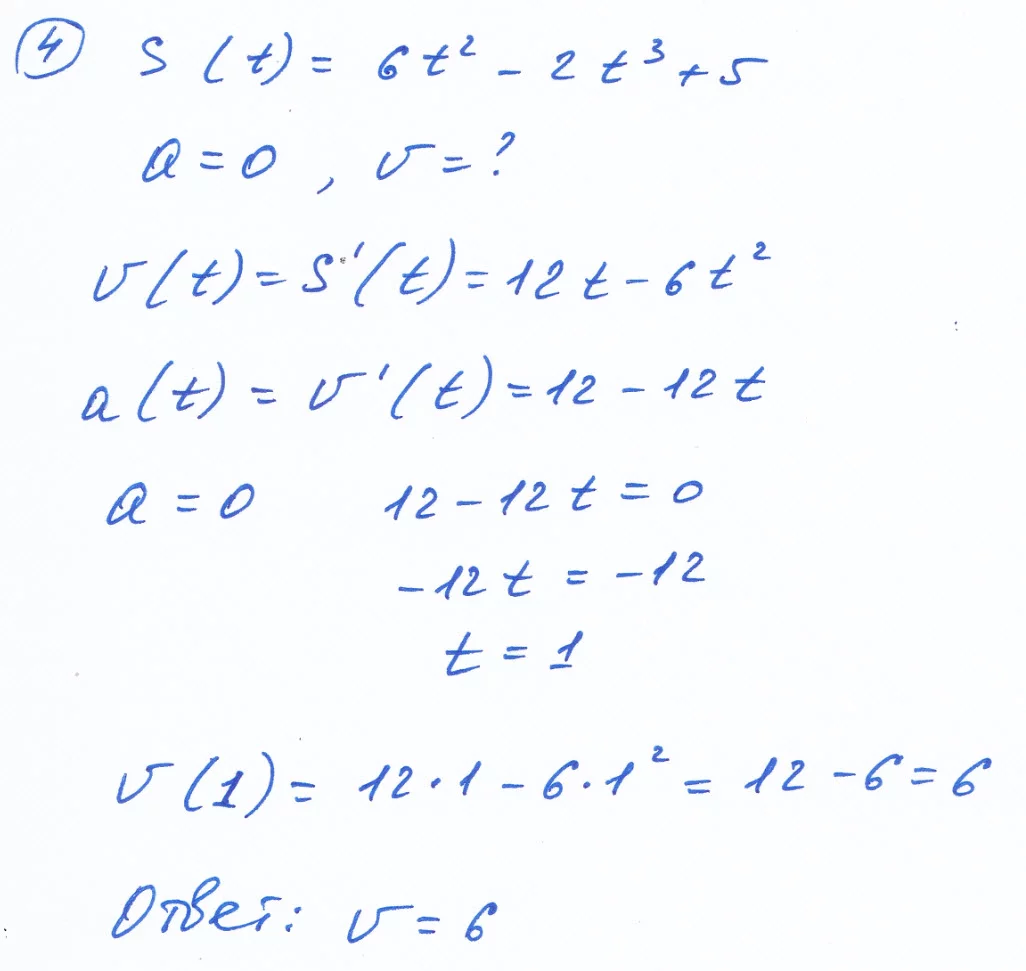 ④ S (t) = 6t² - 2t³ + 5
a = 0 , v = ?
v(t) = S'(t) = 12t - 6t²
a(t) = v'(t) = 12 - 12t
a = 0 12 - 12t = 0
-12t = -12
t = 1
v(1) = 12·1 - 6·1² = 12 - 6 = 6
Ответ: v = 6